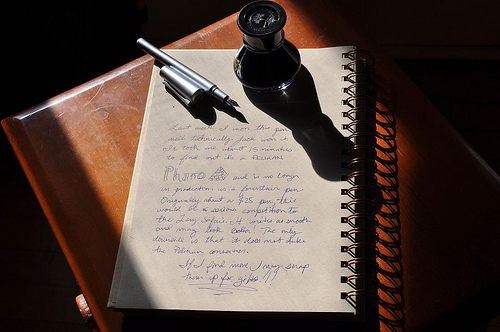 Last week I won this pen
well technically Jack won it
It took me about 15 minutes
to find out its a PELIKAN
Pharo and is no longer
in production as a fountain pen
Originally about a $25 pen this
would be a serious competition to
the Lamy Safari. It writes as smooth
and may look better! The only
downside is that it does not take
the Pelikan converter.
If I find more, I may snap
them up for gifts!!